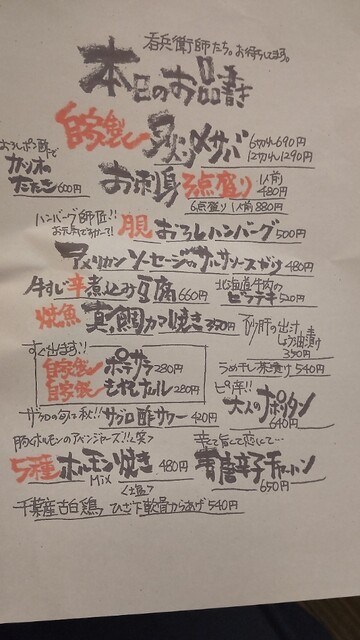 呑兵衛師たち。お待ちしてます。
本日のお品書き
自家製 炙り〆サバ 6切れ690円
12切れ1,290円
おろしポン酢で
カツオの
たたき 600円
お刺身 3点盛り 1人前
480円
6点盛り 1人前 880円
ハンバーグ師匠!!
おろしハンバーグ 500円
アメリカンソーセージのサルサソースがけ 480円
牛すじ辛煮込み豆腐 660円
北海道牛肉の
ビフテキ 520円
焼魚 真鯛カマ焼き 350円
砂肝の出汁
しょう油漬
350円
すぐ出ます!!
自家製 ポテサラ 280円
自家製 もやしナムル 280円
うめ干し茶漬け 540円
ピリ辛!!
大人のナポリタン
640円
サブロの旬は秋!! サブロ酢サワー 420円
豚ホルモンのアベンジャーズ!!
5種 ホルモン焼き 480円
Mix
<塩>
辛くて旨くて恋しくて…
青唐辛子チャーハン
650円
千葉産古白鶏 ひざ下軟骨からあげ 540円